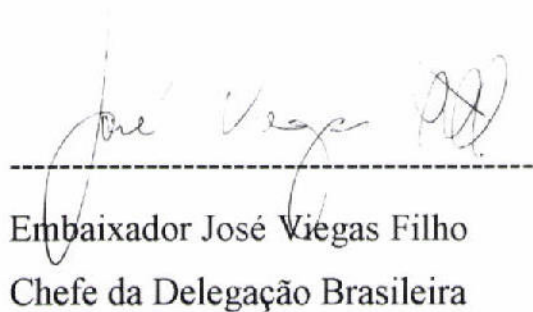 José Viegas
Embaixador José Viegas Filho
Chefe da Delegação Brasileira